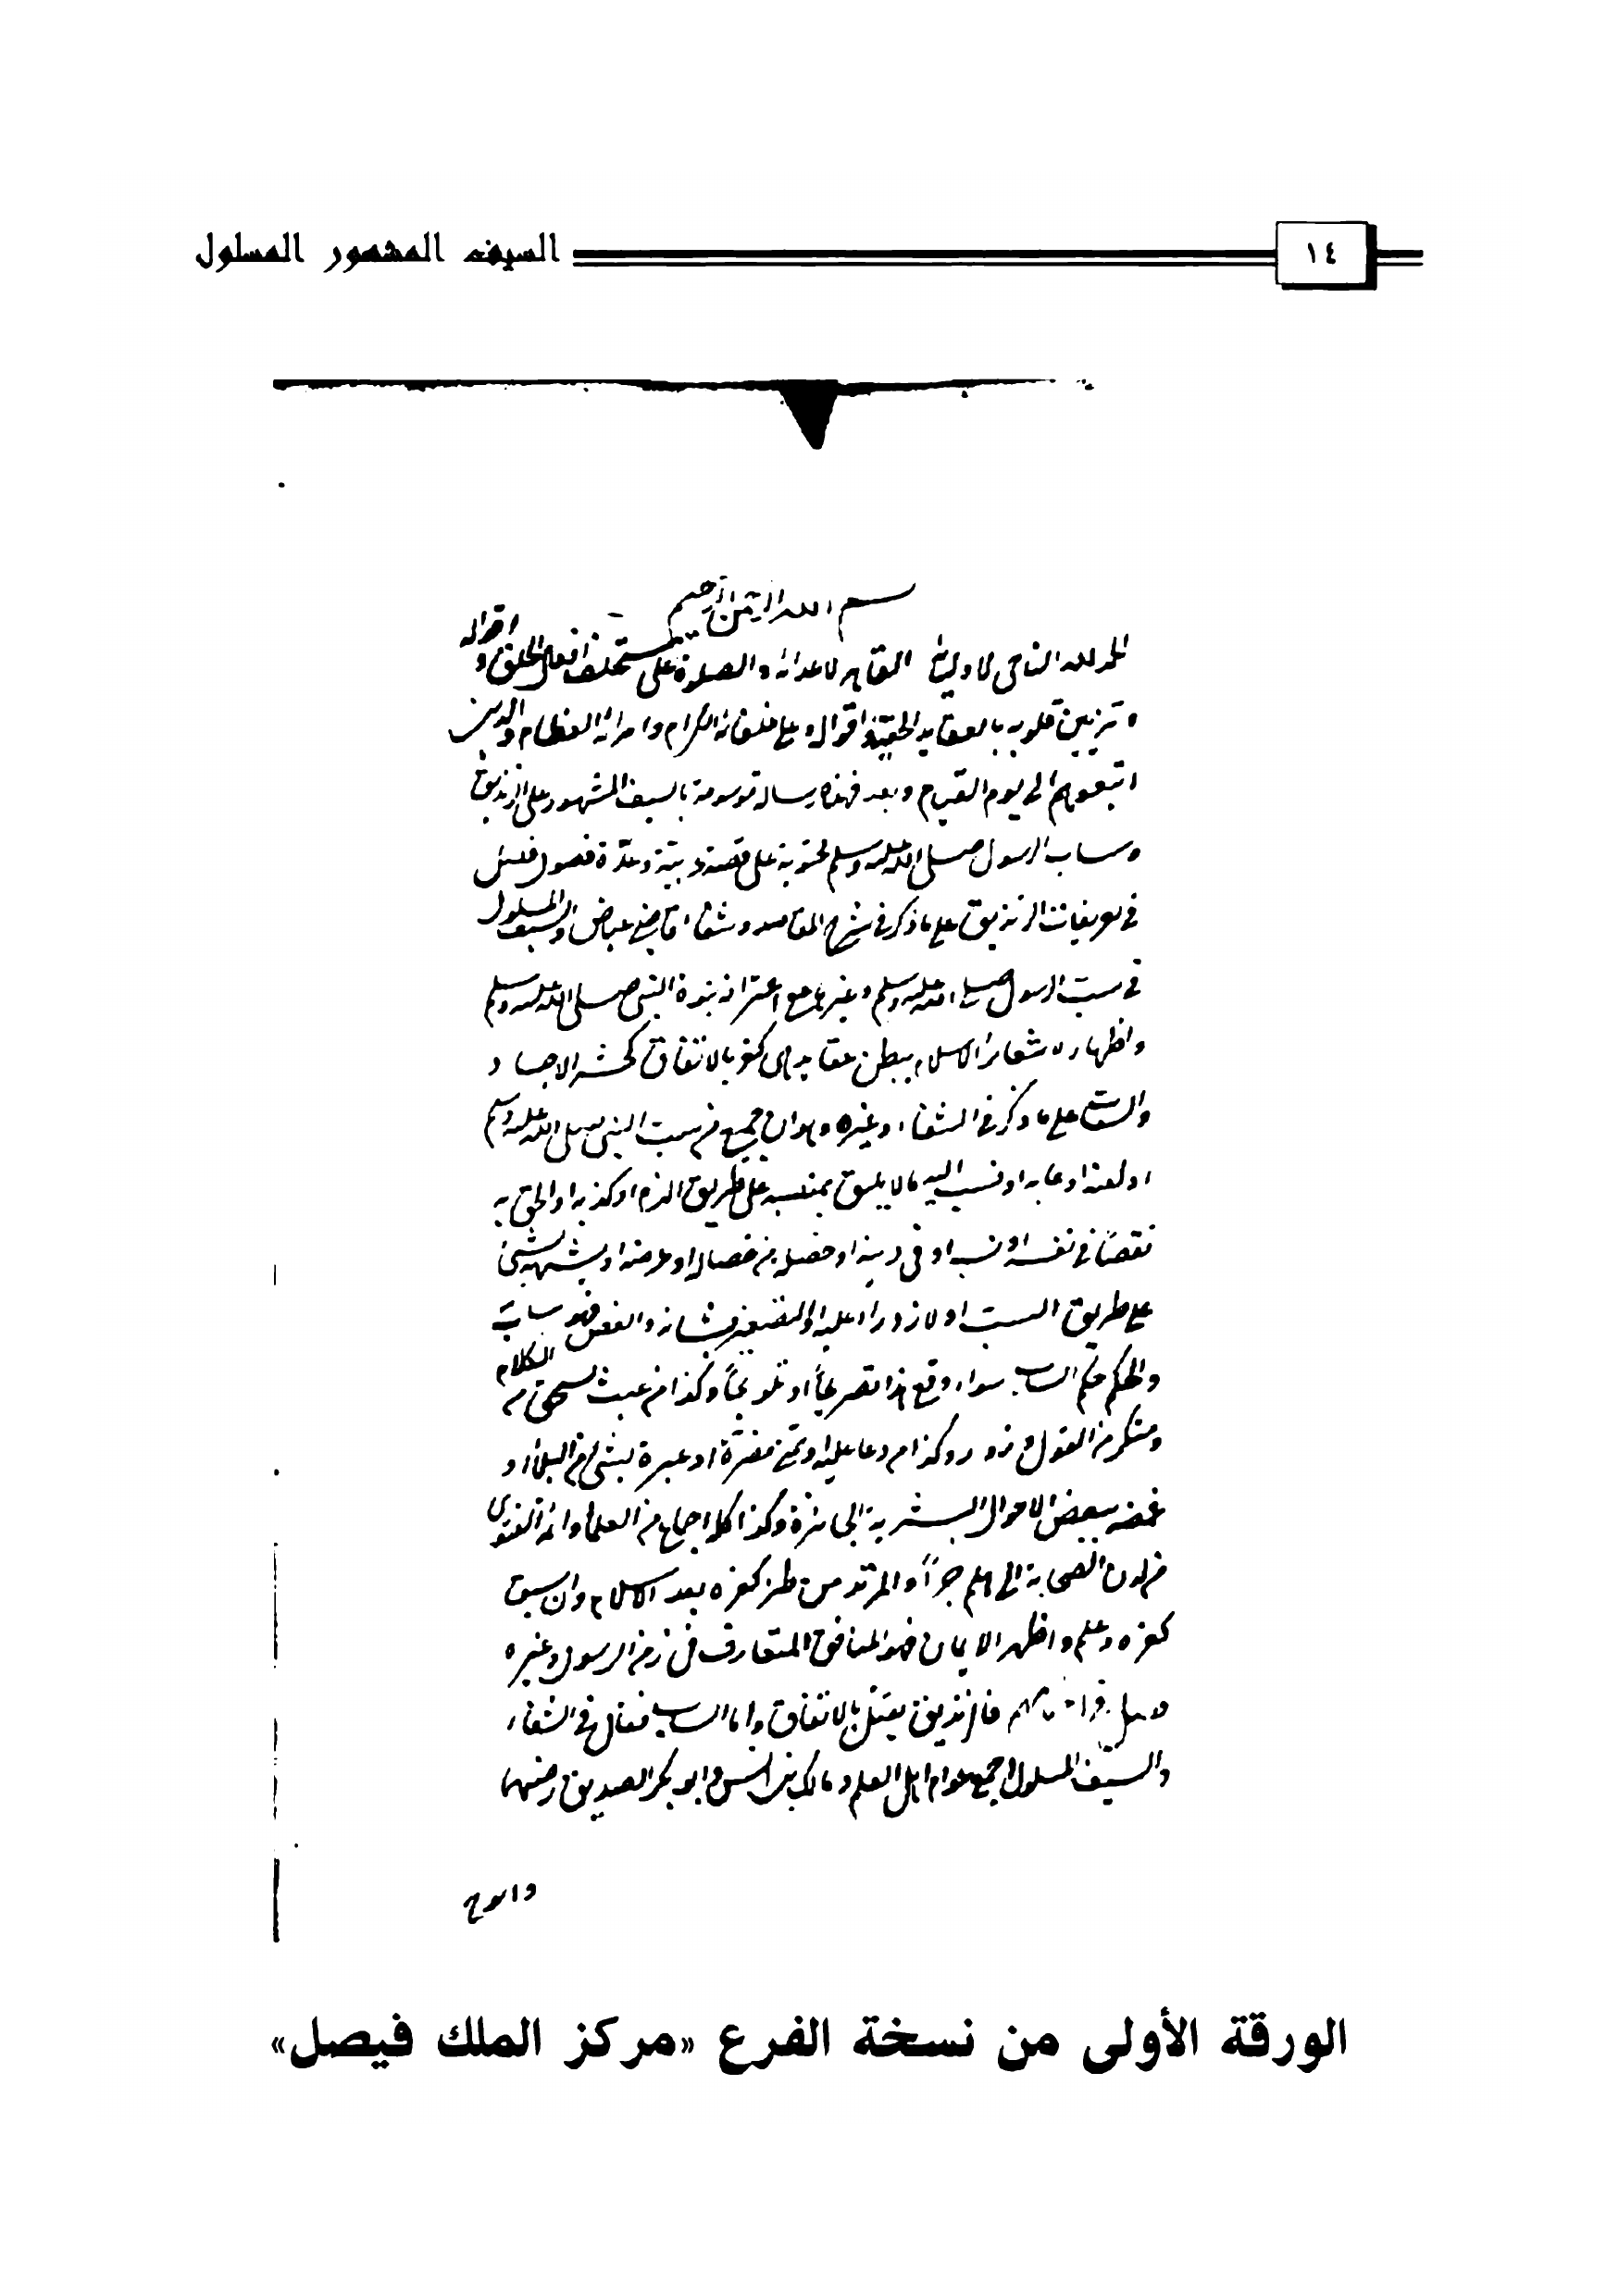 السيف المشهور المسلول
١٤
بسم الله الرحمن الرحيم
الحمد لله الناحى لاوليائه القاهر لاعدائه والصلوة على افضل الخلق و اقواله
وتزيين قلوبه بالعقايد الحقية اقواله وعلى خلفائه الكرام وامرائه العظام والدين
اتبعوهم الى يوم القيام وبعد فهذه رسالة موسومة بالسيف المشهور على الزنديق
وساب الرسول صلى الله عليه وسلم محتوية على وعدة فصول فصل
فى تعريفات الزنديق على ما ذكر فى شرح المقاصد وشفاء قاضى عياض والسيف المسلول
فى سب الرسول صلى الله عليه وسلم وغيرها مع اعترافه بنبوة النبى صلى الله عليه وسلم
واظهاره شعائر الاسلام يبطن عقايد هى كفر بالاتفاق كحشر الاجساد
والساب على ما ذكر فى الشفاء وغيره وهو ان جميع من سب النبى صلى الله عليه وسلم
او لعنه او عابه او نسب اليه ما لا يليق بمنصبه على طريق الذم او كذبه او الحق به
نقصًا فى نفسه او نسبه او فى دينه او خصلة من خصاله او عرضه او شبهه بشئ
على طريق السب او الازدراء عليه او التصغير بشانه والغض فهو ساب
والحكم حكم الساب سواء وقع هذا تصريحًا او تلويحًا وكذا من عبث الكلام
ومنكر من القول وزور وكذا من دعا عليه او تمنى مضرة او عيره بشئ من البلاء او
غمصه ببعض الاحوال البشرية الجائزة وكذا كله اجماع من العلماء وائمة الفتوى
من لدن الصحابة الى هلم جرّاً والمرتد من طرأ كفره بعد الاسلام وان سبق
كفره وعلم واظهر الايمان فهو المنافق المتعارف فى زمن الرسول وغيره
فالزنديق يقتل بالاتفاق واما الساب فقال فى الشفاء
والسيف المسلول اجمع عوام اهل العلم ومالك بن انس وابو بكر الصديق رضى
الورقة الأولى من نسخة الفرع «مركز الملك فيصل»